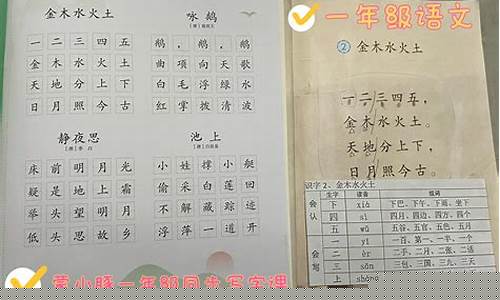 金木水火土
一二三四五
金木水火土
天地分上下
日月照今古
咏鹅
[唐]骆宾王
鹅,鹅,鹅,
曲项向天歌
白毛浮绿水
红掌拨清波
静夜思
[唐]李白
床前明月光
疑是地上霜
举头望明月
低头思故乡
池上
[唐]白居易
小娃撑小艇
偷采白莲回
不解藏踪迹
浮萍一道开
一年级语文
② 金木水火土
一二三四五,
金木水火土。
天地分上下,
日月照今古。
识字2、金木水火土
生字 读音 组词
会认
下 xià 下巴、下午、下雨、坐下
四 sì 四月、四边、四方、四个
五 wǔ 五谷、五官、五色、五月
会写
一 yī 一百、第一、一半、一个
二 èr 二手、二月、二张、二话
三 sān 三包、三国、三九、三天
上 shàng
一年级同步写字课